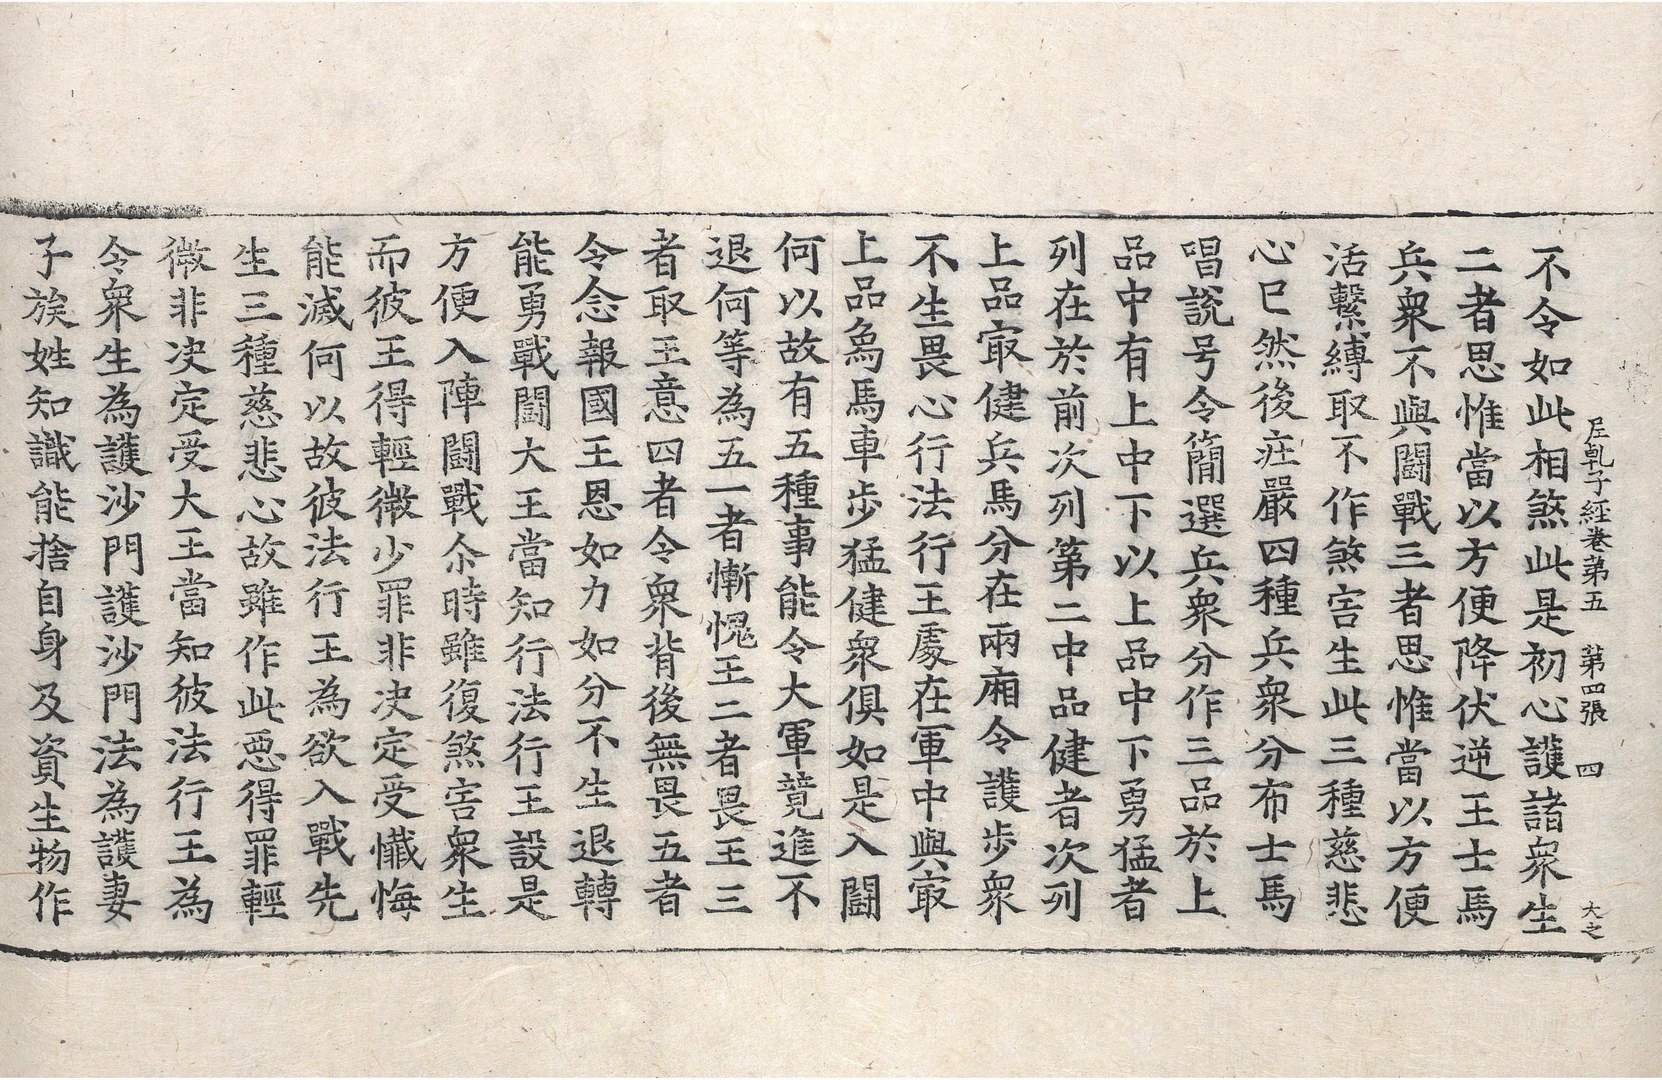 尼乹子經卷第五　第四張　四　大之
不令如此相煞此是初心護諸衆生
二者思惟當以方便降伏逆王士馬
兵衆不與鬪戰三者思惟當以方便
活繫縛取不作煞害生此三種慈悲
心已然後莊嚴四種兵衆分布士馬
唱說号令簡選兵衆分作三品於上
品中有上中下以上品中下勇猛者
列在於前次列第二中品健者次列
上品㝡健兵馬分在兩廂令護步衆
不生畏心行法行王處在軍中與㝡
上品烏馬車步猛健衆俱如是入鬪
何以故有五種事能令大軍竟進不
退何等為五一者慚愧王二者畏王三
者取王意四者令衆背後無畏五者
令念報國王恩如力如分不生退轉
能勇戰鬪大王當知行法行王設是
方便入陣鬪戰尒時雖復煞害衆生
而彼王得輕微少罪非决定受懺悔
能滅何以故彼法行王為欲入戰先
生三種慈悲心故雖作此惡得罪輕
微非决定受大王當知彼法行王為
令衆生為護沙門護沙門法為護妻
子族姓知識能捨自身及資生物作